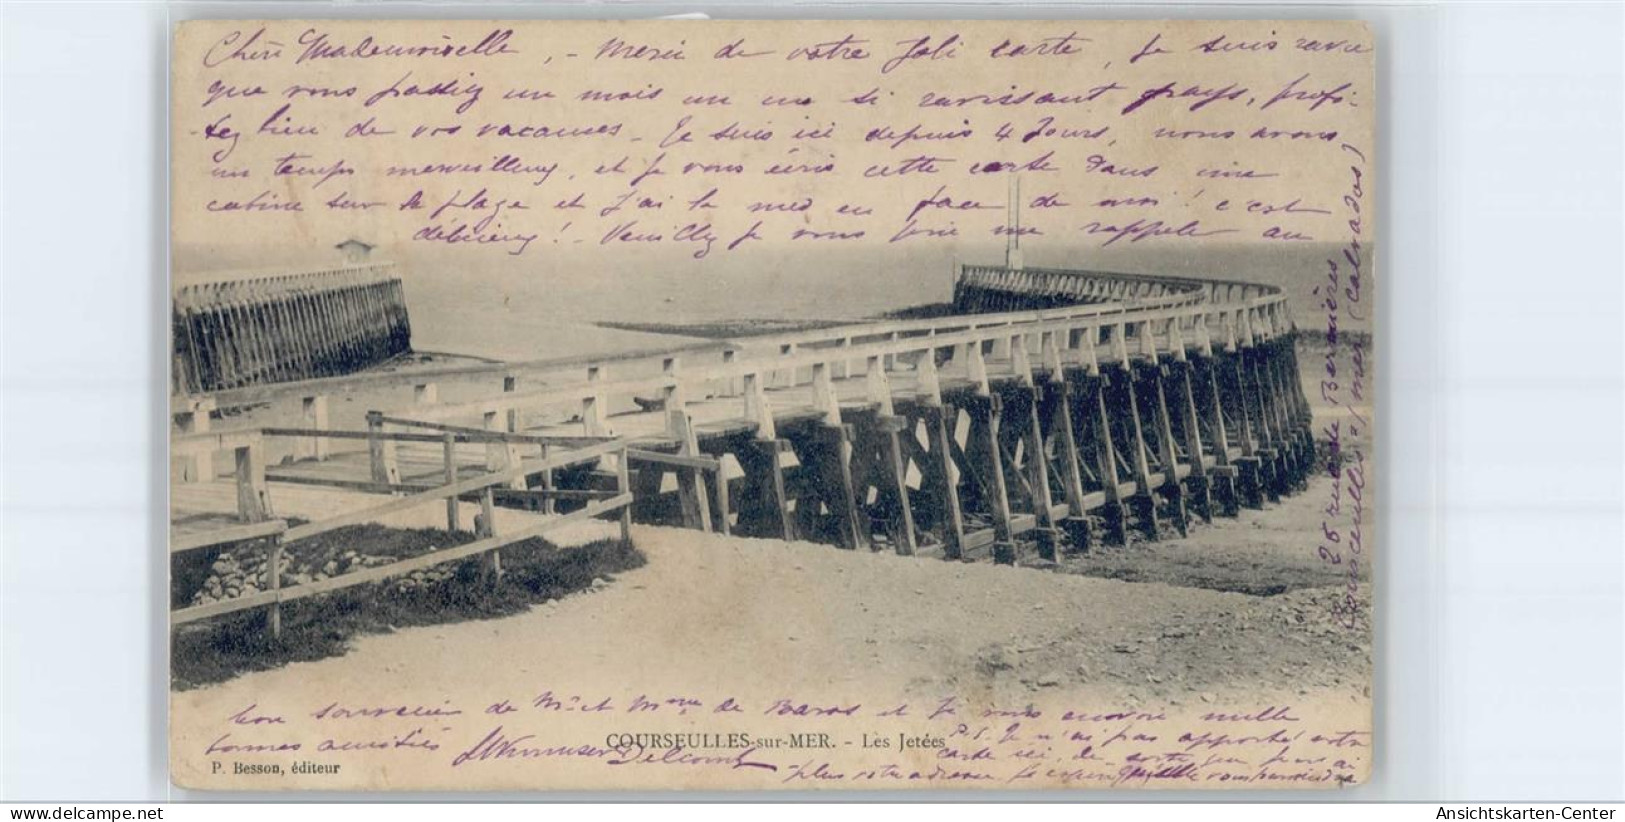 Chère Mademoiselle, - Merci de votre Joli carte, Je suis ravie
que vous passiez un mois un un si ravissant pays, profi-
-tez bien de vos vacances - Je suis ici depuis 4 Jours, nous avons
un temps merveilleux, et je vous écris cette carte dans une
cabine sur la plage et J'ai la mer en face de moi! c'est
délicieux! - Veuillez Je vous prie me rappeler au
bon souvenir de Mr et Mme de Baros et Je vous envoie mille
bonnes amitiés
Delcourt
P.S. Je n'ai pas apporté votre
carte ici, de sorte que je n'ai
plus votre adresse, Je espère qu'elle vous parviendra
COURSEULLES-sur-MER. - Les Jetées
P. Besson, éditeur
26 rue de Bernières
Courseulles s/mer (Calvados)
Ansichtskarten-Center